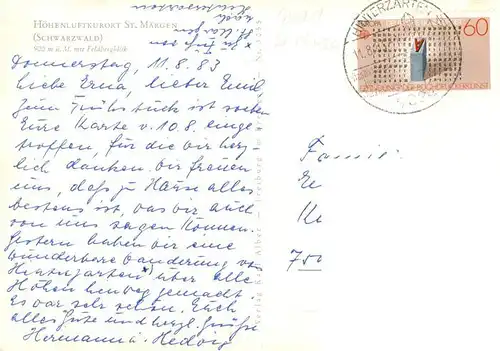 HÖHENLUFTKURORT ST. MÄRGEN
(SCHWARZWALD)
920 m ü. M. mit Feldbergblick
Donnerstag, 11.8.83
Liebe Erna, lieber Emil,
zum Frühstück ist soeben
Eure Karte v. 10.8. einge
troffen, für die wir herz
lich danken. Wir freuen
uns, daß zu Hause alles
bestens ist, was wir auch
von uns sagen können.
Gestern haben wir eine
wunderbare Wanderung von
Hinterzarten *) über alle
Höhen hinweg gemacht.
Es war sehr schön. Euch
alles Gute und herzl. Grüße
Hermann u. Hedwig
*) zu Fuß
St. Märgen
nach
HINTERZARTEN
60
Famil
E
K
750